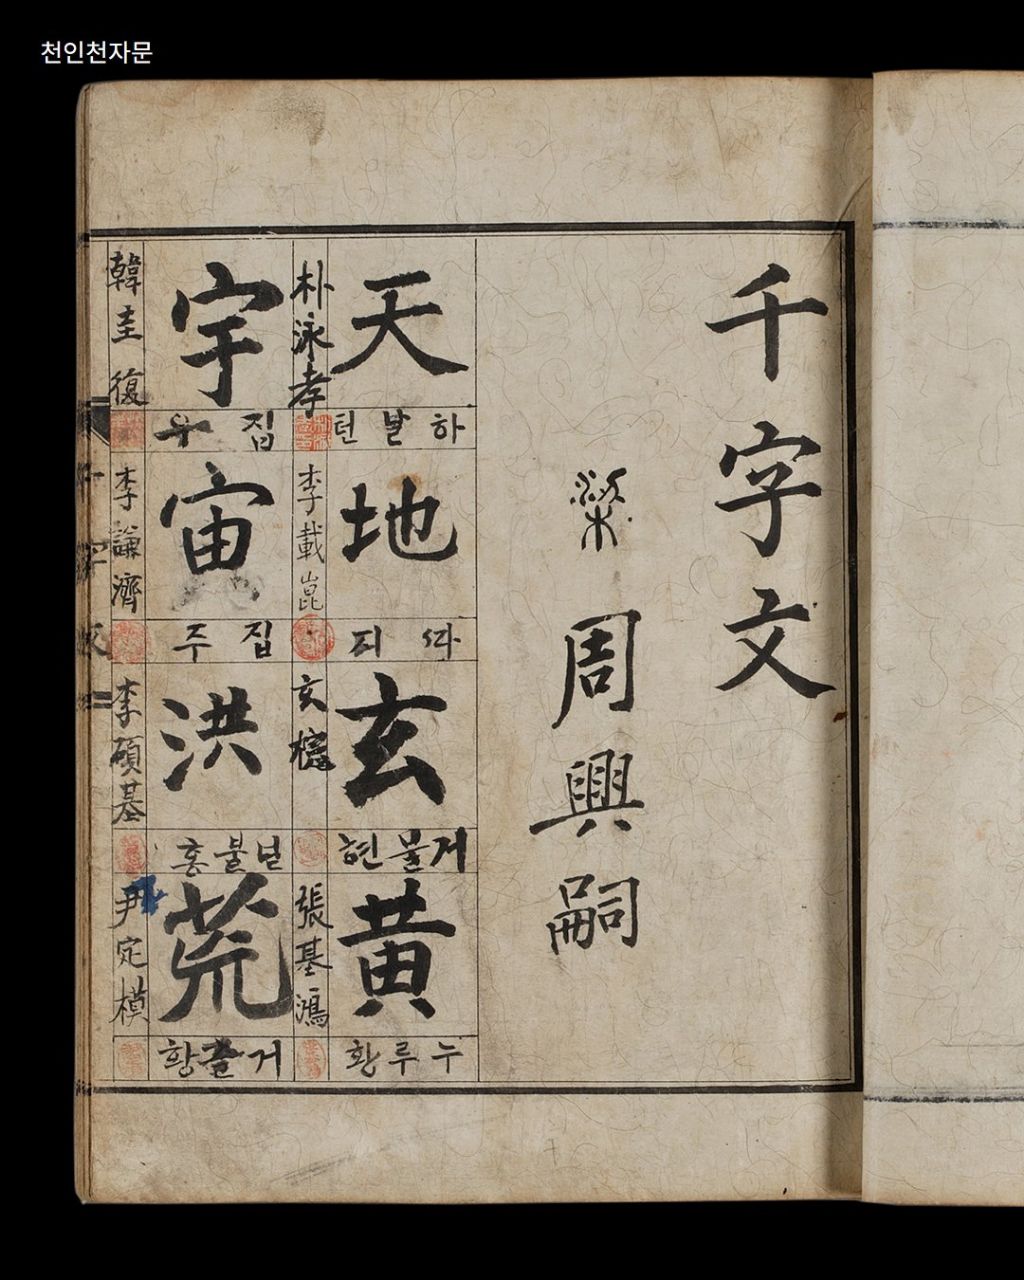 천인천자문
千字文
梁 周興嗣
天
하날텬
朴泳孝
地
ᄯᅡ지
李載崑
玄
거물현
玄
黃
누루황
張基鴻
宇
집우
韓圭復
宙
집주
李謙濟
洪
불홍
李碩基
荒
거츨황
尹定模